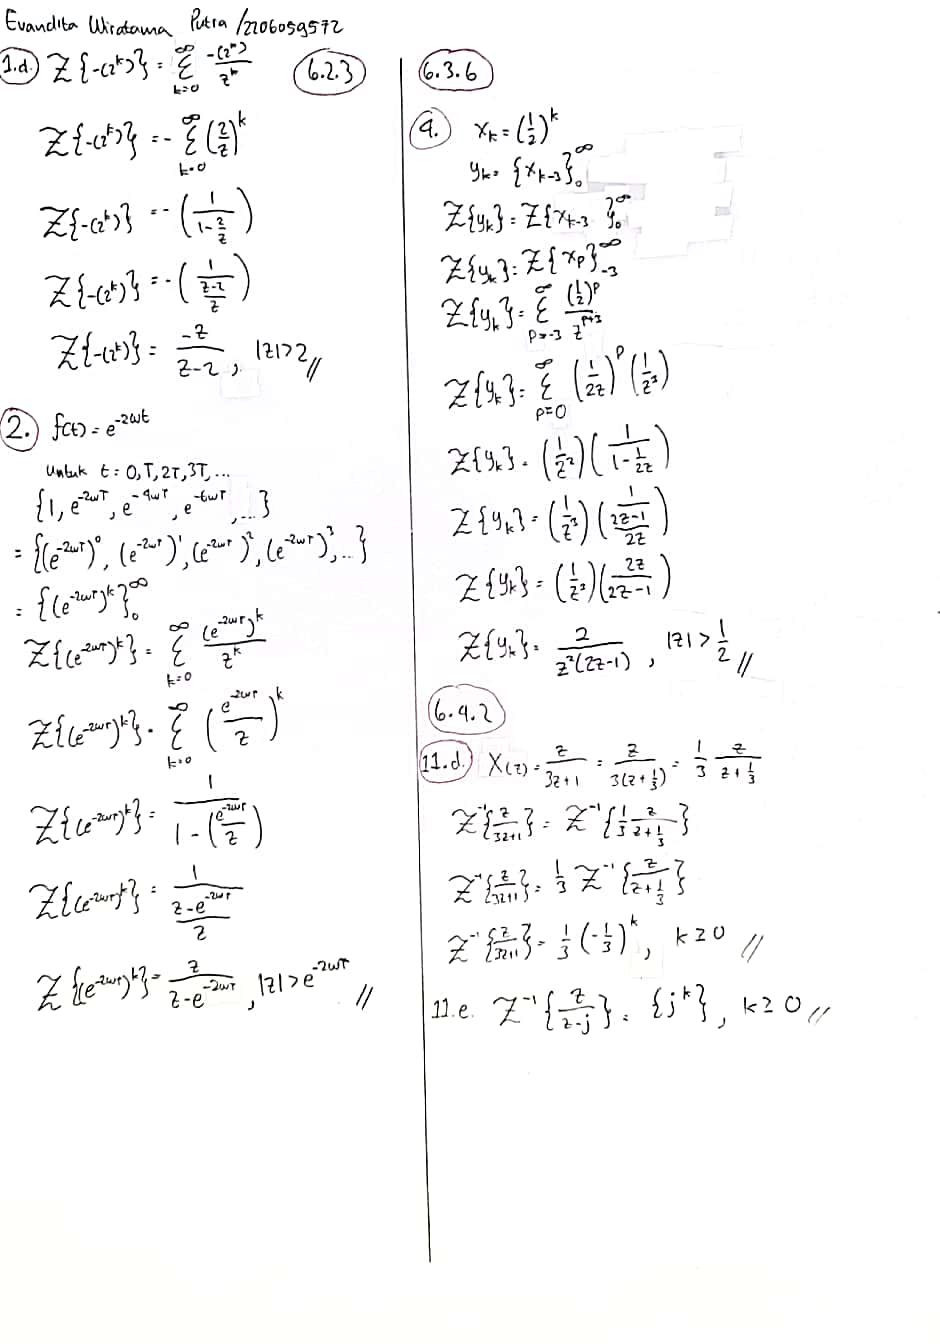 Evandita Wiratama Putra /2206059572
1.d. Z{-(2^k)} = Σ_{k=0}^{∞} -(2^k)/z^k (6.2.3)
Z{-(2^k)} = - Σ_{k=0}^{∞} (2/z)^k
Z{-(2^k)} = - (1/(1-2/z))
Z{-(2^k)} = - (1/((z-2)/z))
Z{-(2^k)} = -z/(z-2), |z|>2 //
2. f(t) = e^{-2ωt}
Untuk t = 0,T,2T,3T,...
{1, e^{-2ωT}, e^{-4ωT}, e^{-6ωT}, ...}
= {(e^{-2ωT})^0, (e^{-2ωT})^1, (e^{-2ωT})^2, (e^{-2ωT})^3, ...}
= {(e^{-2ωT})^k}_0^∞
Z{(e^{-2ωT})^k} = Σ_{k=0}^{∞} (e^{-2ωT})^k/z^k
Z{(e^{-2ωT})^k} = Σ_{k=0}^{∞} (e^{-2ωT}/z)^k
Z{(e^{-2ωT})^k} = 1/(1-(e^{-2ωT}/z))
Z{(e^{-2ωT})^k} = 1/((z-e^{-2ωT})/z)
Z{(e^{-2ωT})^k} = z/(z-e^{-2ωT}), |z|>e^{-2ωT} //
6.3.6
4. x_k = (1/2)^k
y_k = {x_{k-3}}_0^∞
Z{y_k} = Z{x_{k-3}}_0^∞
Z{y_k} = Z{x_p}_{-3}^∞
Z{y_k} = Σ_{p=-3}^{∞} (1/2)^p/z^{p+3}
Z{y_k} = Σ_{p=0}^{∞} (1/2z)^p (1/z^3)
Z{y_k} = (1/z^3)(1/(1-1/2z))
Z{y_k} = (1/z^3)(1/((2z-1)/2z))
Z{y_k} = (1/z^3)(2z/(2z-1))
Z{y_k} = 2/(z^2(2z-1)), |z| > 1/2 //
6.4.2
11.d. X(z) = z/(3z+1) = z/(3(z+1/3)) = 1/3 z/(z+1/3)
Z^{-1}{z/(3z+1)} = Z^{-1}{1/3 z/(z+1/3)}
Z^{-1}{z/(3z+1)} = 1/3 Z^{-1}{z/(z+1/3)}
Z^{-1}{z/(3z+1)} = 1/3 (-1/3)^k, k≥0 //
11.e. Z^{-1}{z/(z-j)} = {j^k}, k≥0 //